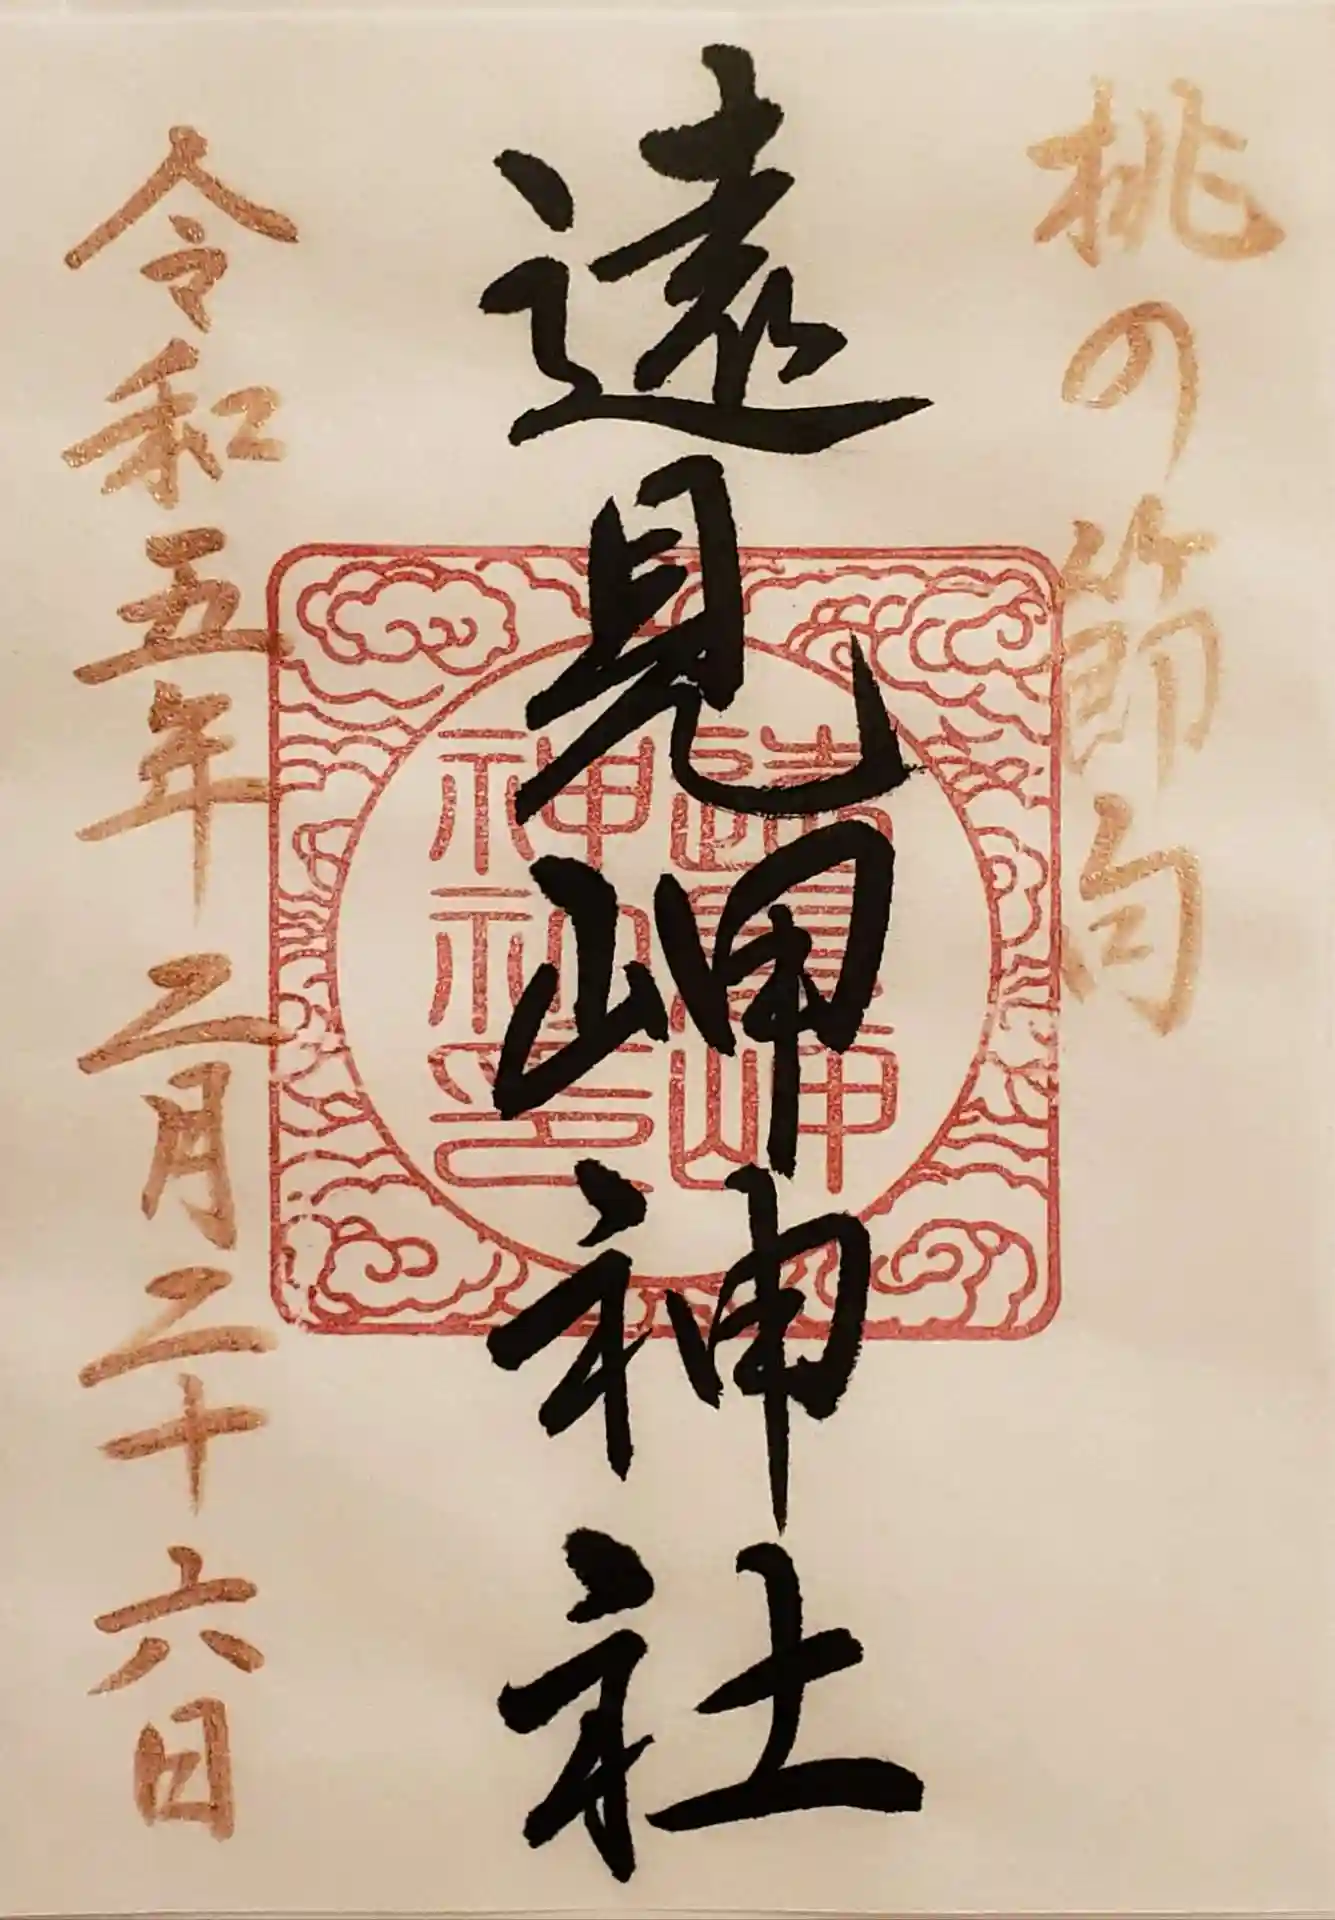 桃の節句
遠見岬神社
遠見岬
神社印
令和五年二月二十六日